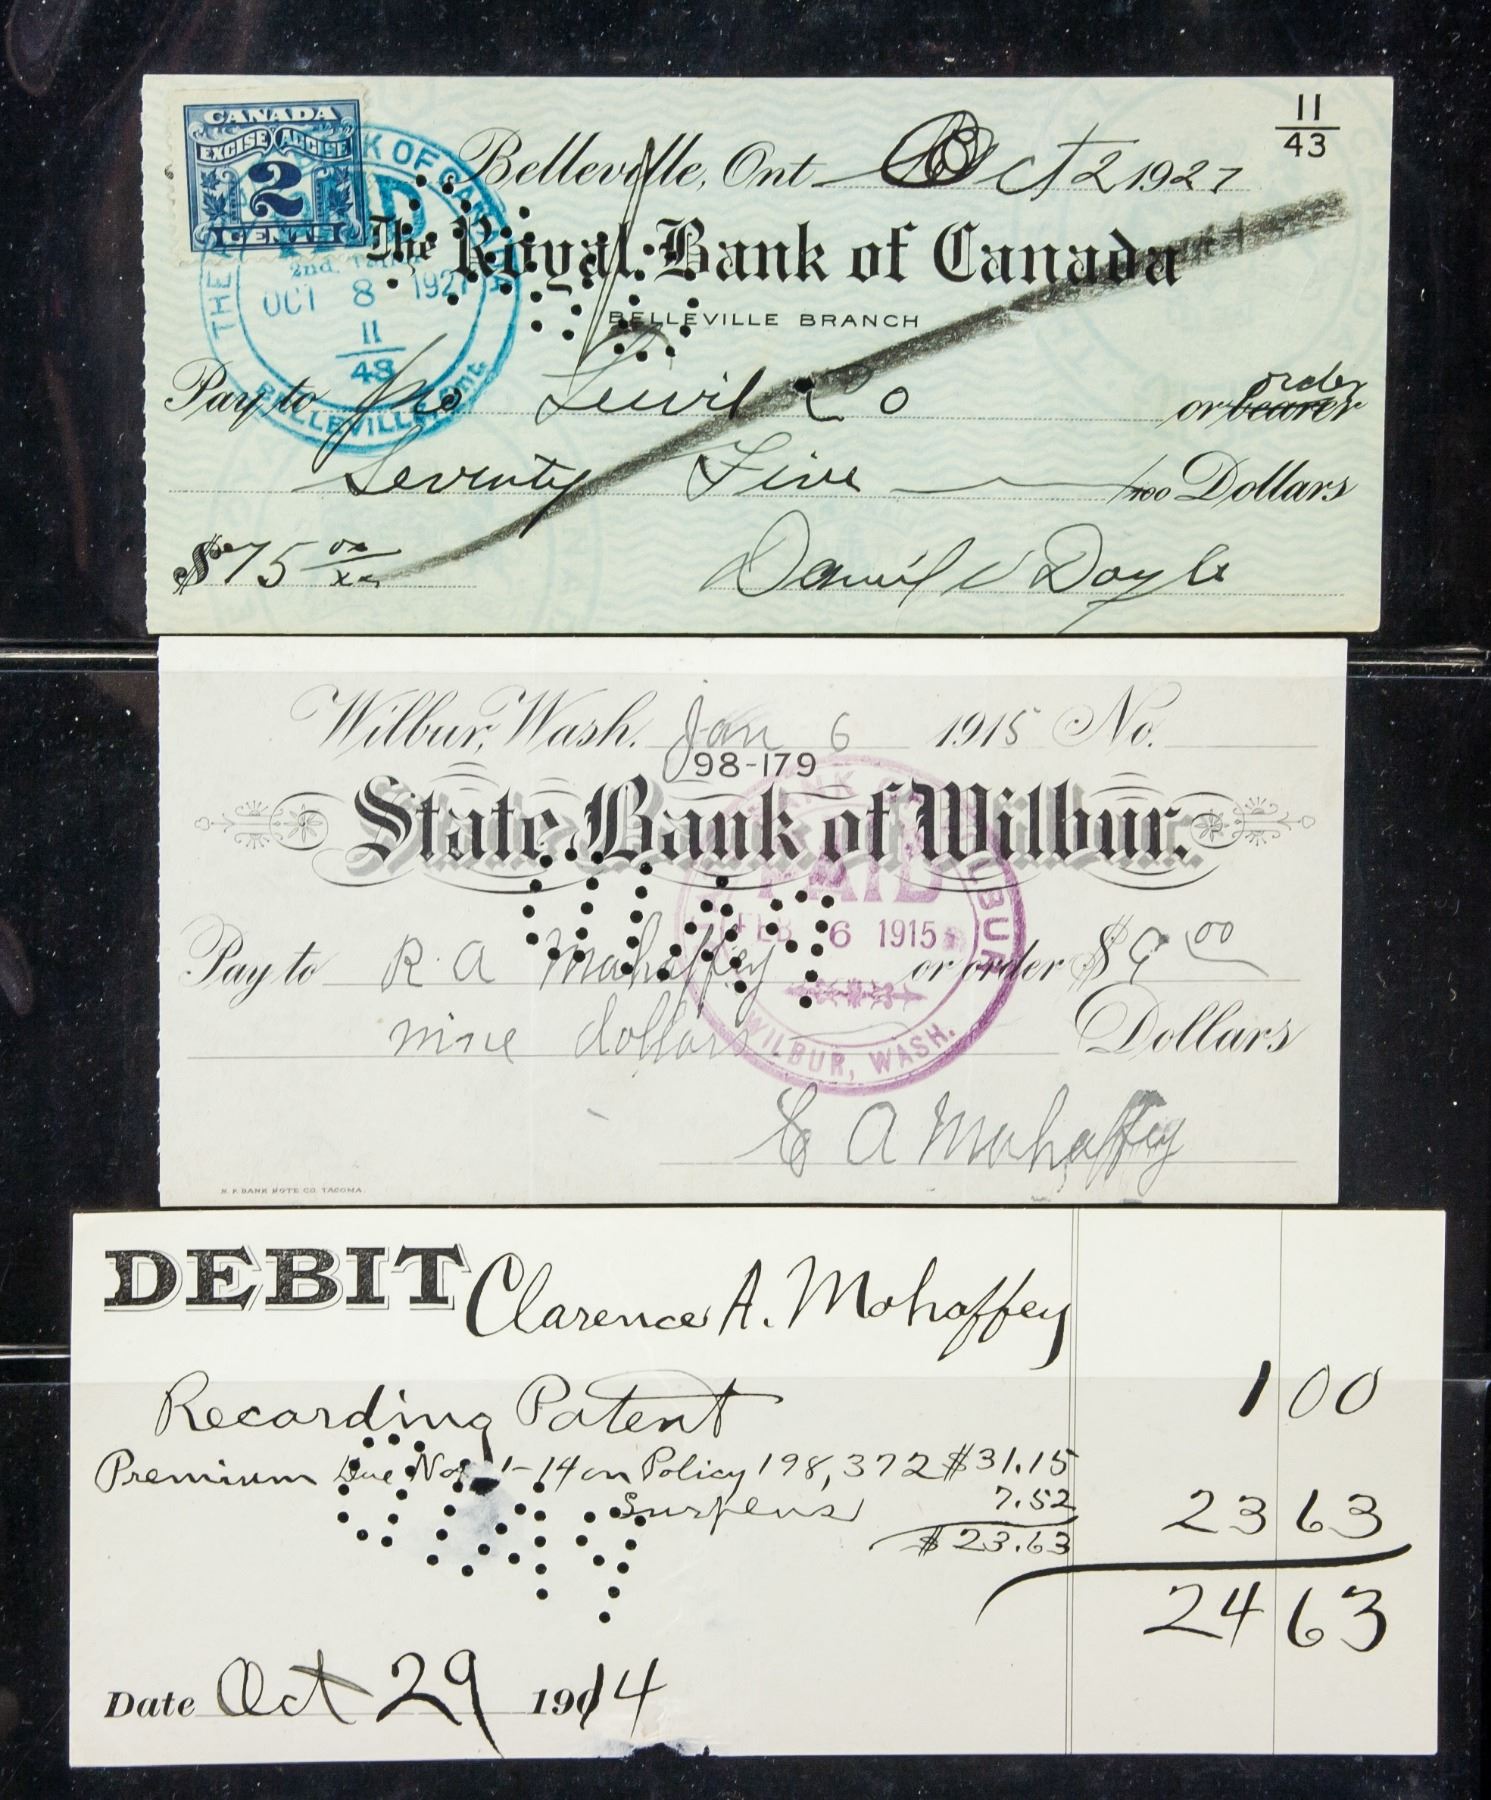 CANADA
EXCISE ACCISE
2
CENTS
11
43
Belleville, Ont. Oct 2 1927
The Royal Bank of Canada
BELLEVILLE BRANCH
OCT 8 1927
11
43
BELLEVILLE, Ont.
order
Pay to Co or bearer
Seventy Five /100 Dollars
$75 00/xx Daniel V Doyle
Wilbur, Wash. Jan 6 1915 No.
98-179
State Bank of Wilbur.
PAID
FEB 6 1915
Pay to R A Mahaffey or order $9 00
nine dollars Dollars
WILBUR, WASH.
C A Mahaffey
N. P. BANK NOTE CO. TACOMA.
DEBIT Clarence A. Mohaffey
Recording Patent 1 00
Premium Due Nov 1-14 on Policy 198,372 $31.15
Suspens 7.52 23 63
$23.63
24 63
Date Oct 29 1914